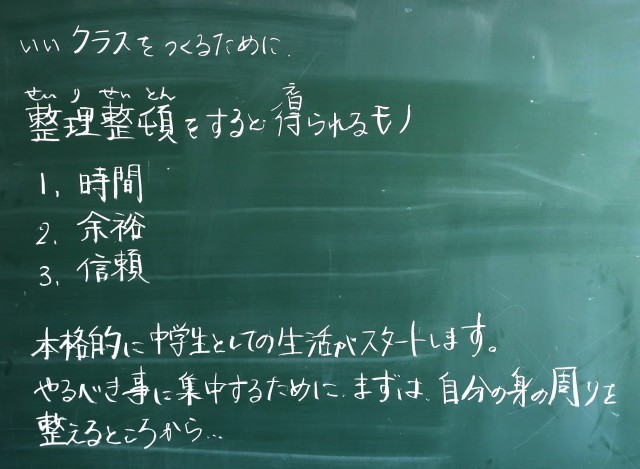 いいクラスをつくるために.
せい り せい とん
整理整頓をすると得られるモノ
1. 時間
2. 余裕
3. 信頼
本格的に中学生としての生活がスタートします。
やるべき事に集中するために、まずは、自分の身の周りを
整えるところから…